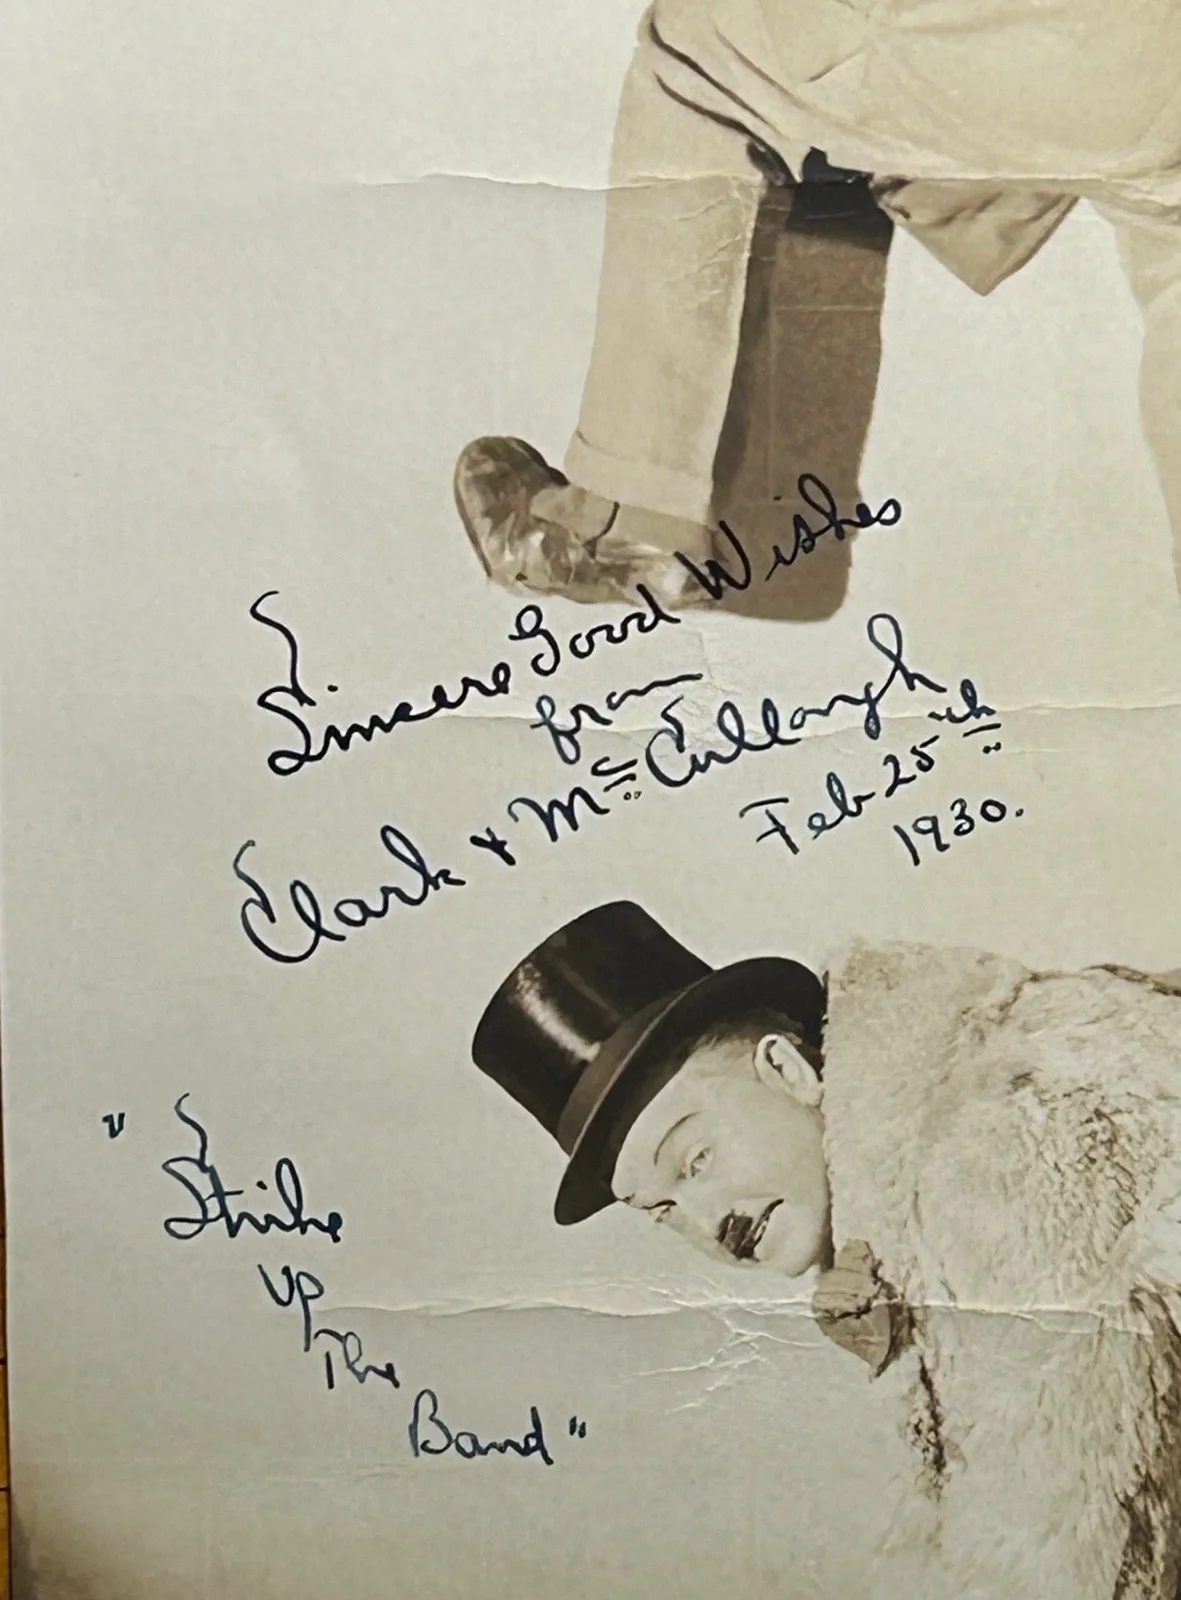 Sincere Good Wishes
from
Clark & Mc Cullough
Feb 25th
1930.
"Strike
up
The
Band"